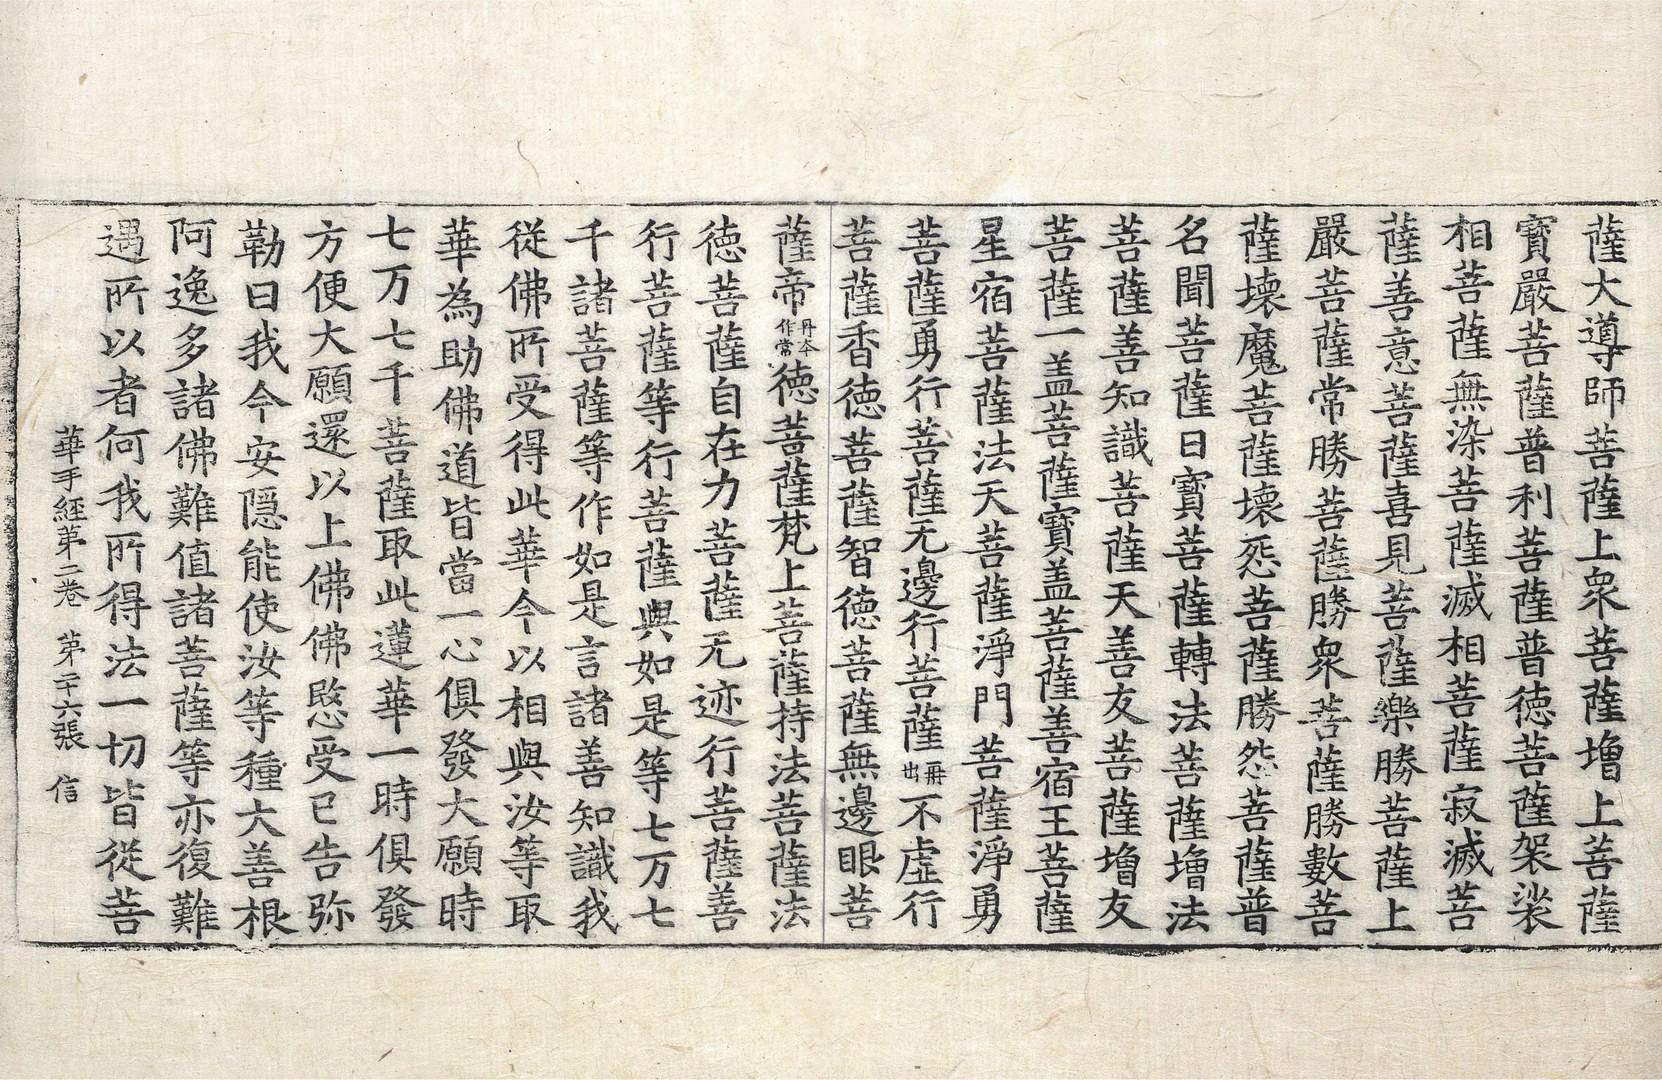 薩大導師菩薩上衆菩薩增上菩薩
寳嚴菩薩普利菩薩普徳菩薩袈裟
相菩薩無染菩薩滅相菩薩寂滅菩
薩善意菩薩喜見菩薩樂勝菩薩上
嚴菩薩常勝菩薩勝衆菩薩勝數菩
薩壊魔菩薩壊怨菩薩勝怨菩薩普
名聞菩薩日寳菩薩轉法菩薩增法
菩薩善知識菩薩天善友菩薩增友
菩薩一盖菩薩寳盖菩薩善宿王菩薩
星宿菩薩法天菩薩淨門菩薩淨勇
菩薩勇行菩薩无邊行菩薩丹出不虛行
菩薩香徳菩薩智徳菩薩無邊眼菩
薩帝丹本作常徳菩薩梵上菩薩持法菩薩法
徳菩薩自在力菩薩无迹行菩薩善
行菩薩等行菩薩與如是等七万七
千諸菩薩等作如是言諸善知識我
從佛所受得此華今以相與汝等取
華為助佛道皆當一心俱發大願時
七万七千菩薩取此蓮華一時俱發
方便大願還以上佛佛愍受已告弥
勒曰我今安隱能使汝等種大善根
阿逸多諸佛難值諸菩薩等亦復難
遇所以者何我所得法一切皆從菩
華手經第二卷 第二十六張 信